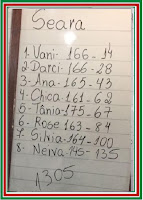 Seara
1. Vani- 166 - 14
2 Darci - 166 - 28
3- Ana - 165 - 43
4- Chica 161 - 62
5- Tânia 175 - 67
6- Rose 163 - 84
7- Silvia 164 - 100
8- Neiva 145 - 135
1305